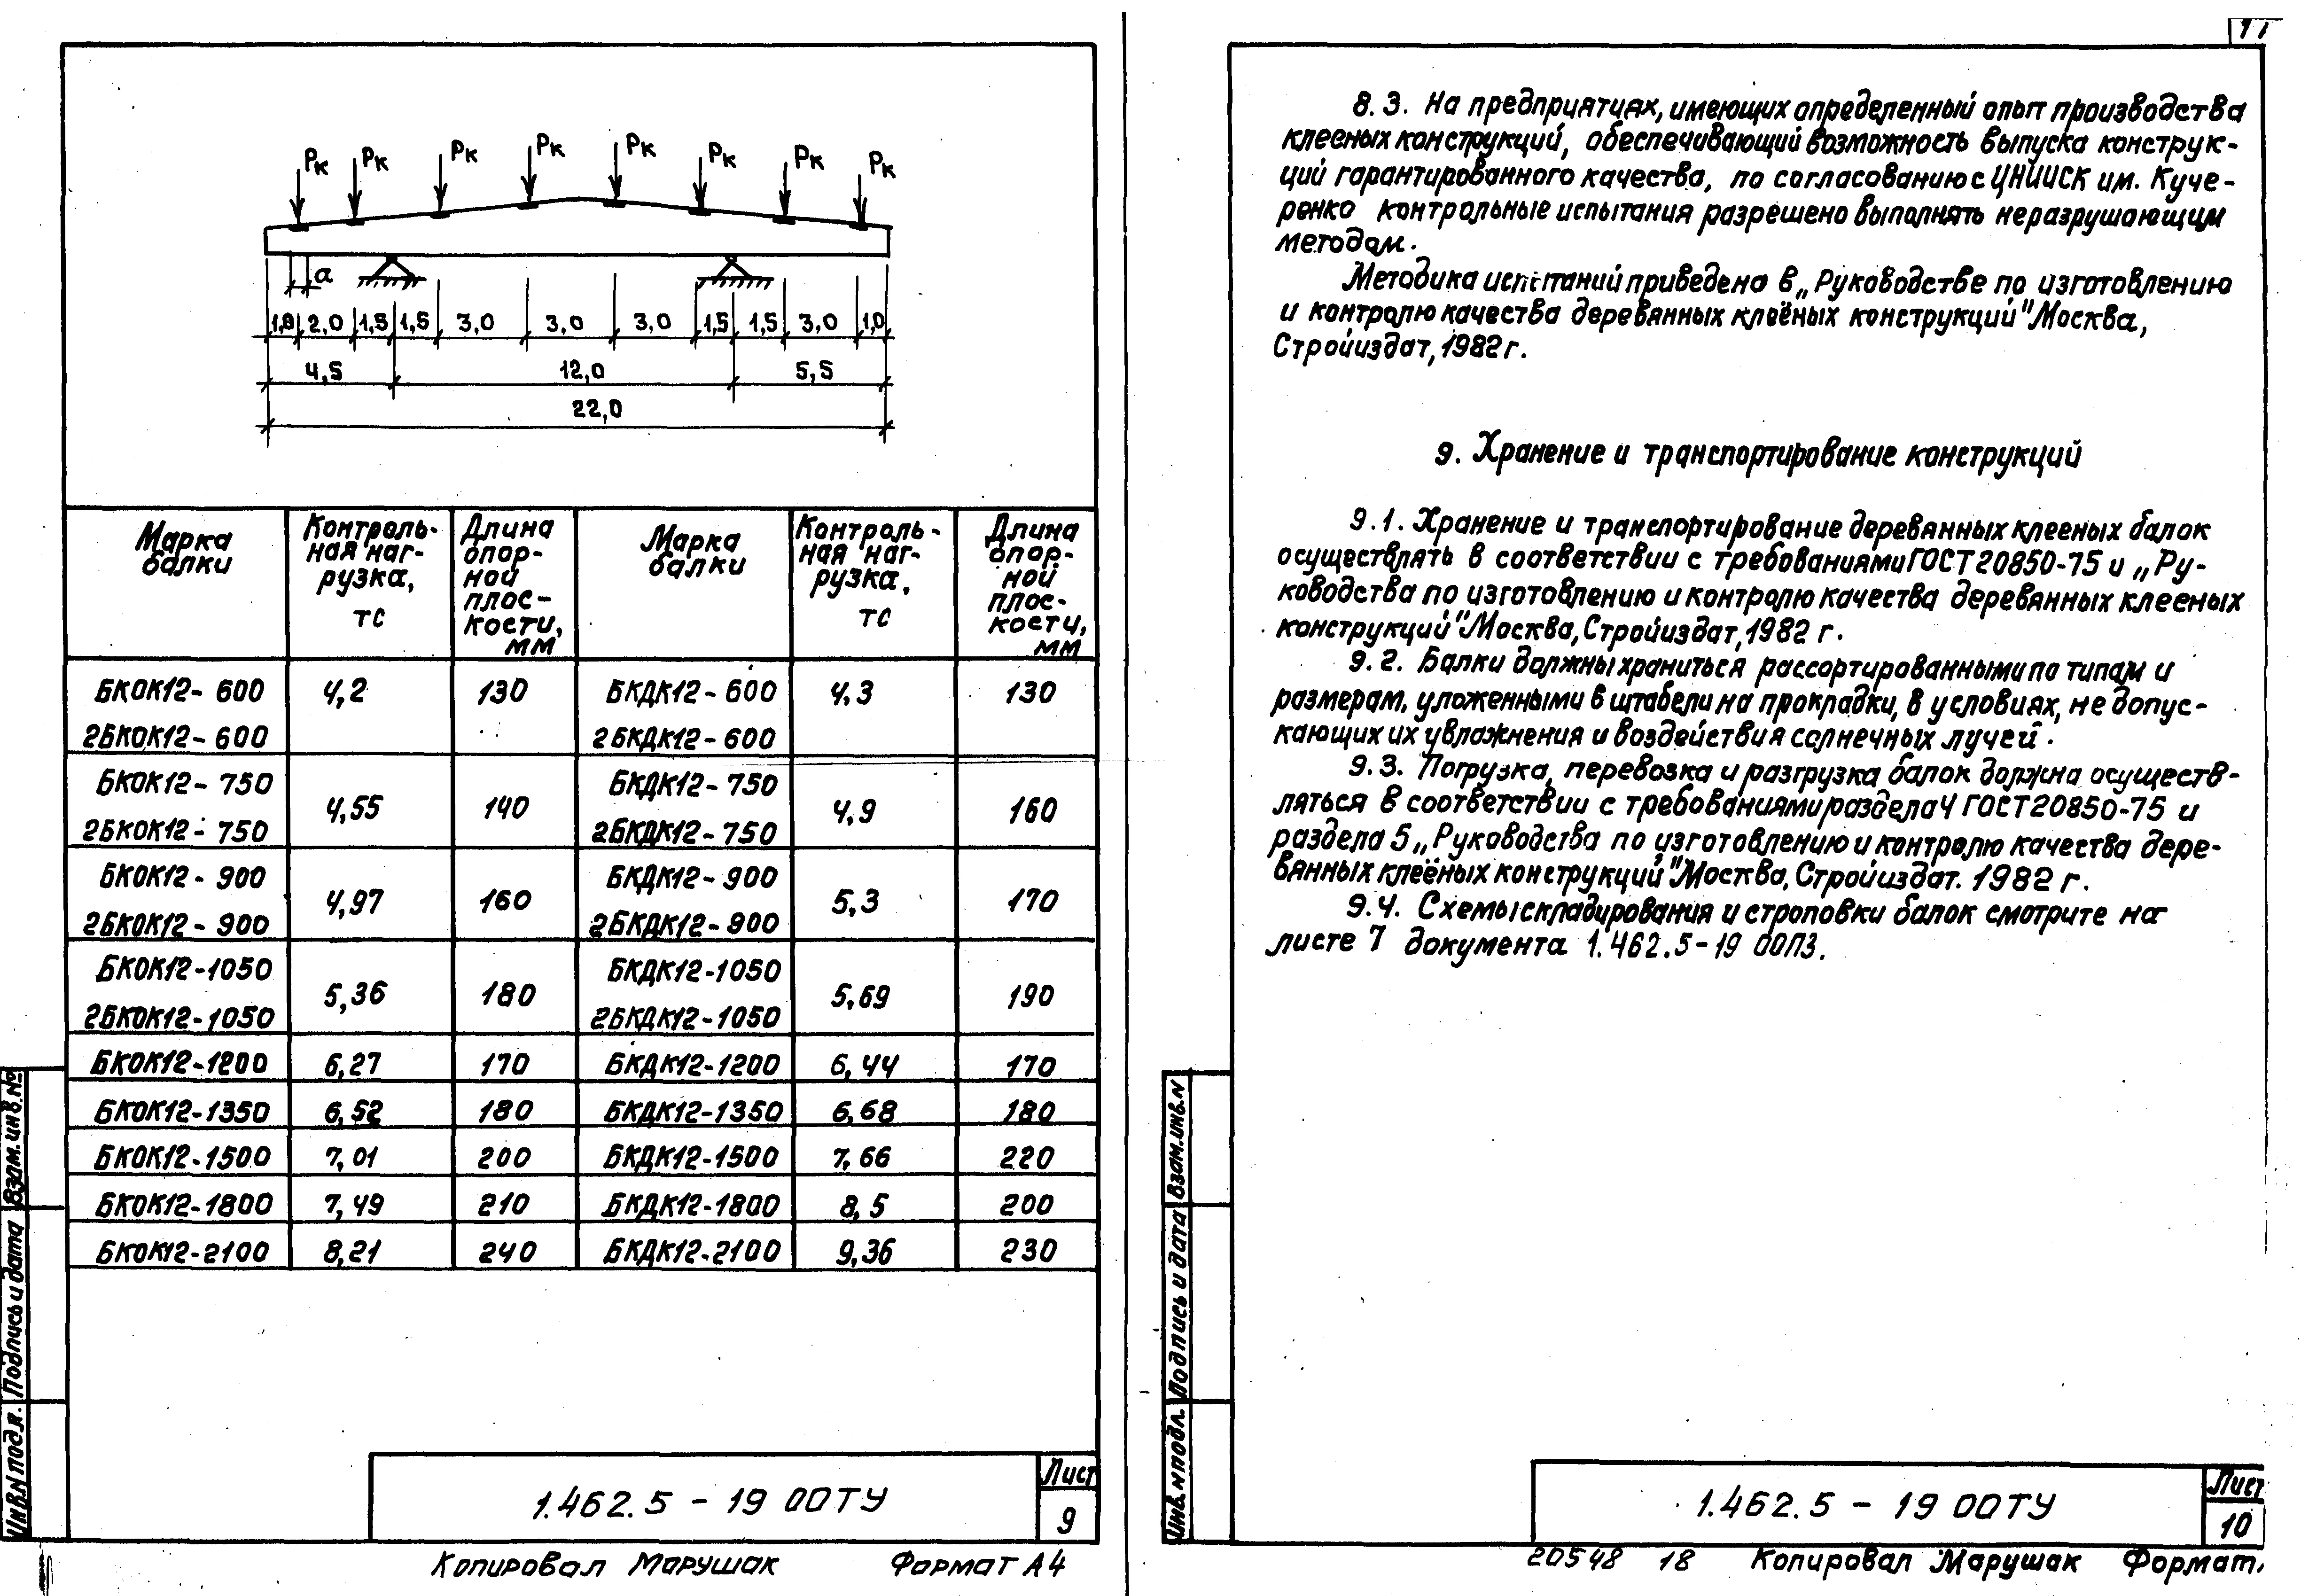 Рк Рк Рк Рк Рк Рк Рк Рк
а
1,0 2,0 1,5 1,5 3,0 3,0 3,0 1,5 1,5 3,0 1,0
4,5 12,0 5,5
22,0
Марка балки | Контроль-ная наг-рузка, тс | Длина опор-ной плос-кости, мм | Марка балки | Контроль-ная наг-рузка, тс | Длина опор-ной плос-кости, мм
БКОК12-600 4,2 130 БКДК12-600 4,3 130
2БКОК12-600 2БКДК12-600
БКОК12-750 БКДК12-750
4,55 140 4,9 160
2БКОК12-750 2БКДК12-750
БКОК12-900 БКДК12-900
4,97 160 5,3 170
2БКОК12-900 2БКДК12-900
БКОК12-1050 БКДК12-1050
5,36 180 5,69 190
2БКОК12-1050 2БКДК12-1050
БКОК12-1200 6,27 170 БКДК12-1200 6,44 170
БКОК12-1350 6,52 180 БКДК12-1350 6,68 180
БКОК12-1500 7,01 200 БКДК12-1500 7,66 220
БКОК12-1800 7,49 210 БКДК12-1800 8,5 200
БКОК12-2100 8,21 240 БКДК12-2100 9,36 230
Инв.N подл. Подпись и дата Взам.инв.№
1.462.5 - 19 00ТУ
Лист
9
Копировал Марушак Формат А4
8.3. На предприятиях, имеющих определенный опыт производства
клееных конструкций, обеспечивающий возможность выпуска конструк-
ций гарантированного качества, по согласованию с ЦНИИСК им. Куче-
ренко контрольные испытания разрешено выполнять неразрушающим
методом.
Методика испытаний приведена в „Руководстве по изготовлению
и контролю качества деревянных клеёных конструкций" Москва,
Стройиздат, 1982 г.
9. Хранение и транспортирование конструкций
9.1. Хранение и транспортирование деревянных клееных балок
осуществлять в соответствии с требованиями ГОСТ 20850-75 и „Ру-
ководства по изготовлению и контролю качества деревянных клееных
конструкций" Москва, Стройиздат, 1982 г.
9.2. Балки должны храниться рассортированными по типам и
размерам, уложенными в штабели на прокладки, в условиях, не допус-
кающих их увлажнения и воздействия солнечных лучей.
9.3. Погрузка, перевозка и разгрузка балок должна осуществ-
ляться в соответствии с требованиями раздела 4 ГОСТ 20850-75 и
раздела 5 „Руководства по изготовлению и контролю качества дере-
вянных клеёных конструкций" Москва, Стройиздат. 1982 г.
9.4. Схемы складирования и строповки балок смотрите на
листе 7 документа 1.462.5-19 00ПЗ.
Инв.N подл. Подпись и дата Взам.инв.N
1.462.5 - 19 00ТУ
Лист
10
20548 18 Копировал Марушак Формат